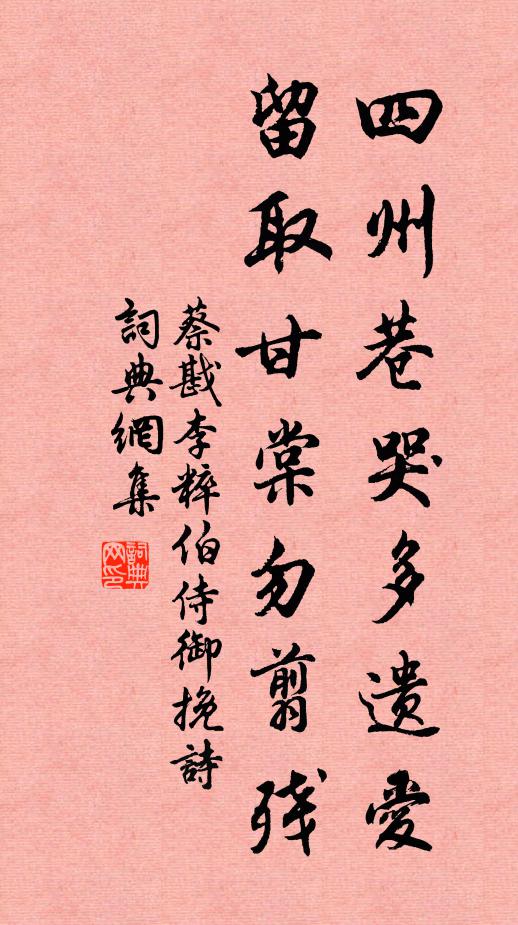 四州巷哭多遗愛
留取甘棠勿翦残
蔡戡李粹伯侍御挽詩
詞典網集
詞典网印